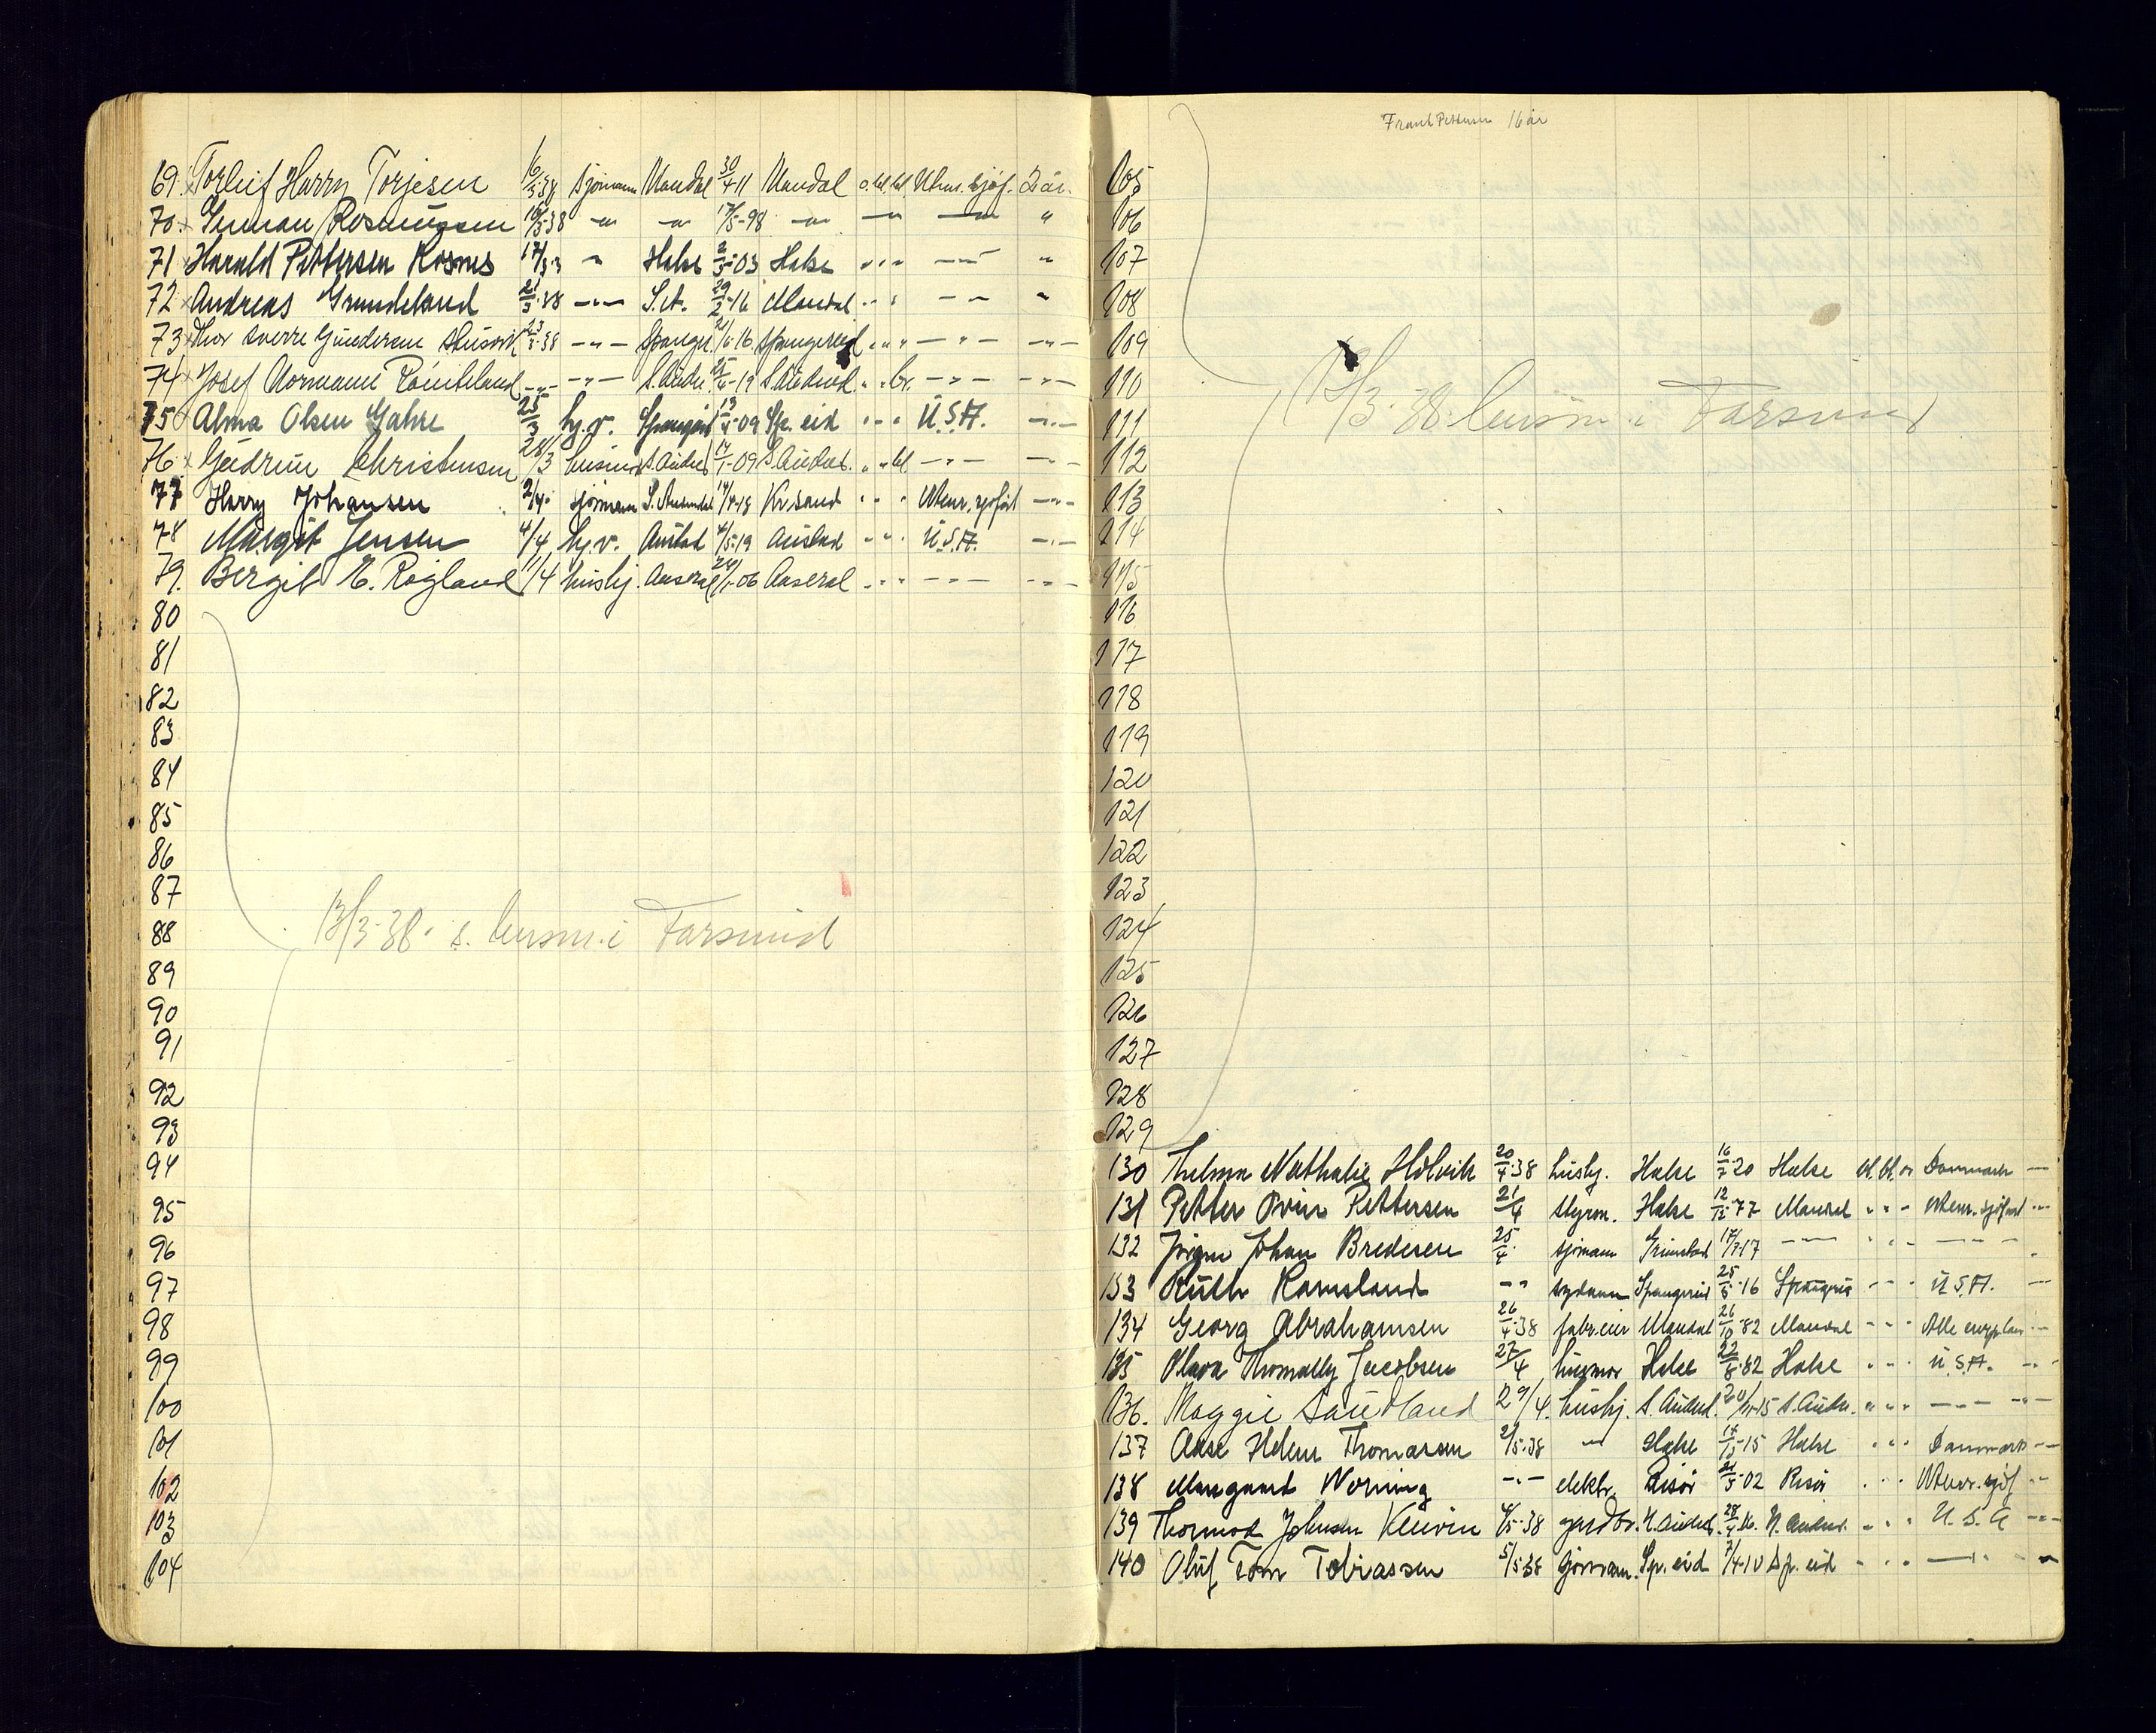 69. Torleif Harry Torjesen 16/3 38 sjömann Mandal 30/4 11 Mandal o. bl. bl. Uten. sjöf. 2 år.
70. Gunnar Rasmussen 16/3 38 -"- -"- 17/5-98 -"- -"- -"- "
71 Harald Pettersen Kosnes 17/3 " Halse 2/3-03 Halse " " " -"- "
72 Andreas Grundeland 21/3-38 -"- S.A. 29/2-16 Mandal " " " -"- "
73 Thor Sverre Gundersen 23/3-38 -"- Spanger. 21/6-16 Spangereid " " " -"- -"-
74 Josef Normann -"- -"- S. Audn. 25/4-19 S. Audnd. " " br. -"- -"-
75 Alma Olsen Gahre 25/3 hj.v. 13/4-09 Sp. eid " " " U.S.A. -"-
76 Gudrun Christensen 28/3 husmor S. Audnd 14/1-09 S. Audnd. " " bl -"- -"-
77 Harry Johansen 2/4 sjömann S. Audnedal 14/4-18 Kr.sand " " " Uten. sjöfart -"-
78 Margit Jensen 4/4 hj.v. Austad 4/5-19 Austad " " " U.S.A. -"-
79. Bergit E. Rögland 11/4 hushj. Aaseral 24/1-06 Aaseral " " " -"- -"-
80
81
82
83
84
85
86
87
88 12/3-38. s. lensm. i Farsund
89
90
91
92
93
94
95
96
97
98
99
100
101
102
103
104
Frank Pettersen 16 år
105
106
107
108
109
110
111 12/3-38 lensm. i Farsund
112
113
114
115
116
117
118
119
120
121
122
123
124
125
126
127
128
129
130 Thelma Nathalie Holvik 20/4-38 hushj. Halse 16/7-20 Halse bl. bl. Danmark —
131 Petter Pettersen 21/4 styrm. Halse 12/12-77 Mandal " " " Uten. sjöfart -"-
132 Jörgen Johan Bredesen 25/4 sjömann Grimstad 17/7-17 -"- " " " -"-
133 Ruth Ramsland -"- sydame Spangereid 25/5-16 " " " U.S.A. -"-
134 Georg Abrahamsen 26/4-38 fabr.eier Mandal 26/10-82 Mandal " " " Alle -"-
135 Thomally Jacobsen 27/4 husmor Halse 22/8-82 Halse " " " U.S.A. -"-
136. Maggie Saudland 29/4. hushj. S. Audnd. 20/11-15 S. Audn. " " " -"- -"-
137 Aase Helene Thomassen 2/5-38 -"- Halse 17/12-15 Halse " " " Danmark -"-
138 Worning -"- elektr. Risör 21/5-02 Risör " " " Uten. sjöf. -"-
139 Thormod Johnsen 4/5-38 gardbr. N. Audnd. 28/4-16. N. Audnd. " " " U.S.A -"-
140 Oluf Tom Tobiassen 5/5-38 sjömann. Sp. eid 7/4-10 Sp. eid " " " -"- -"-